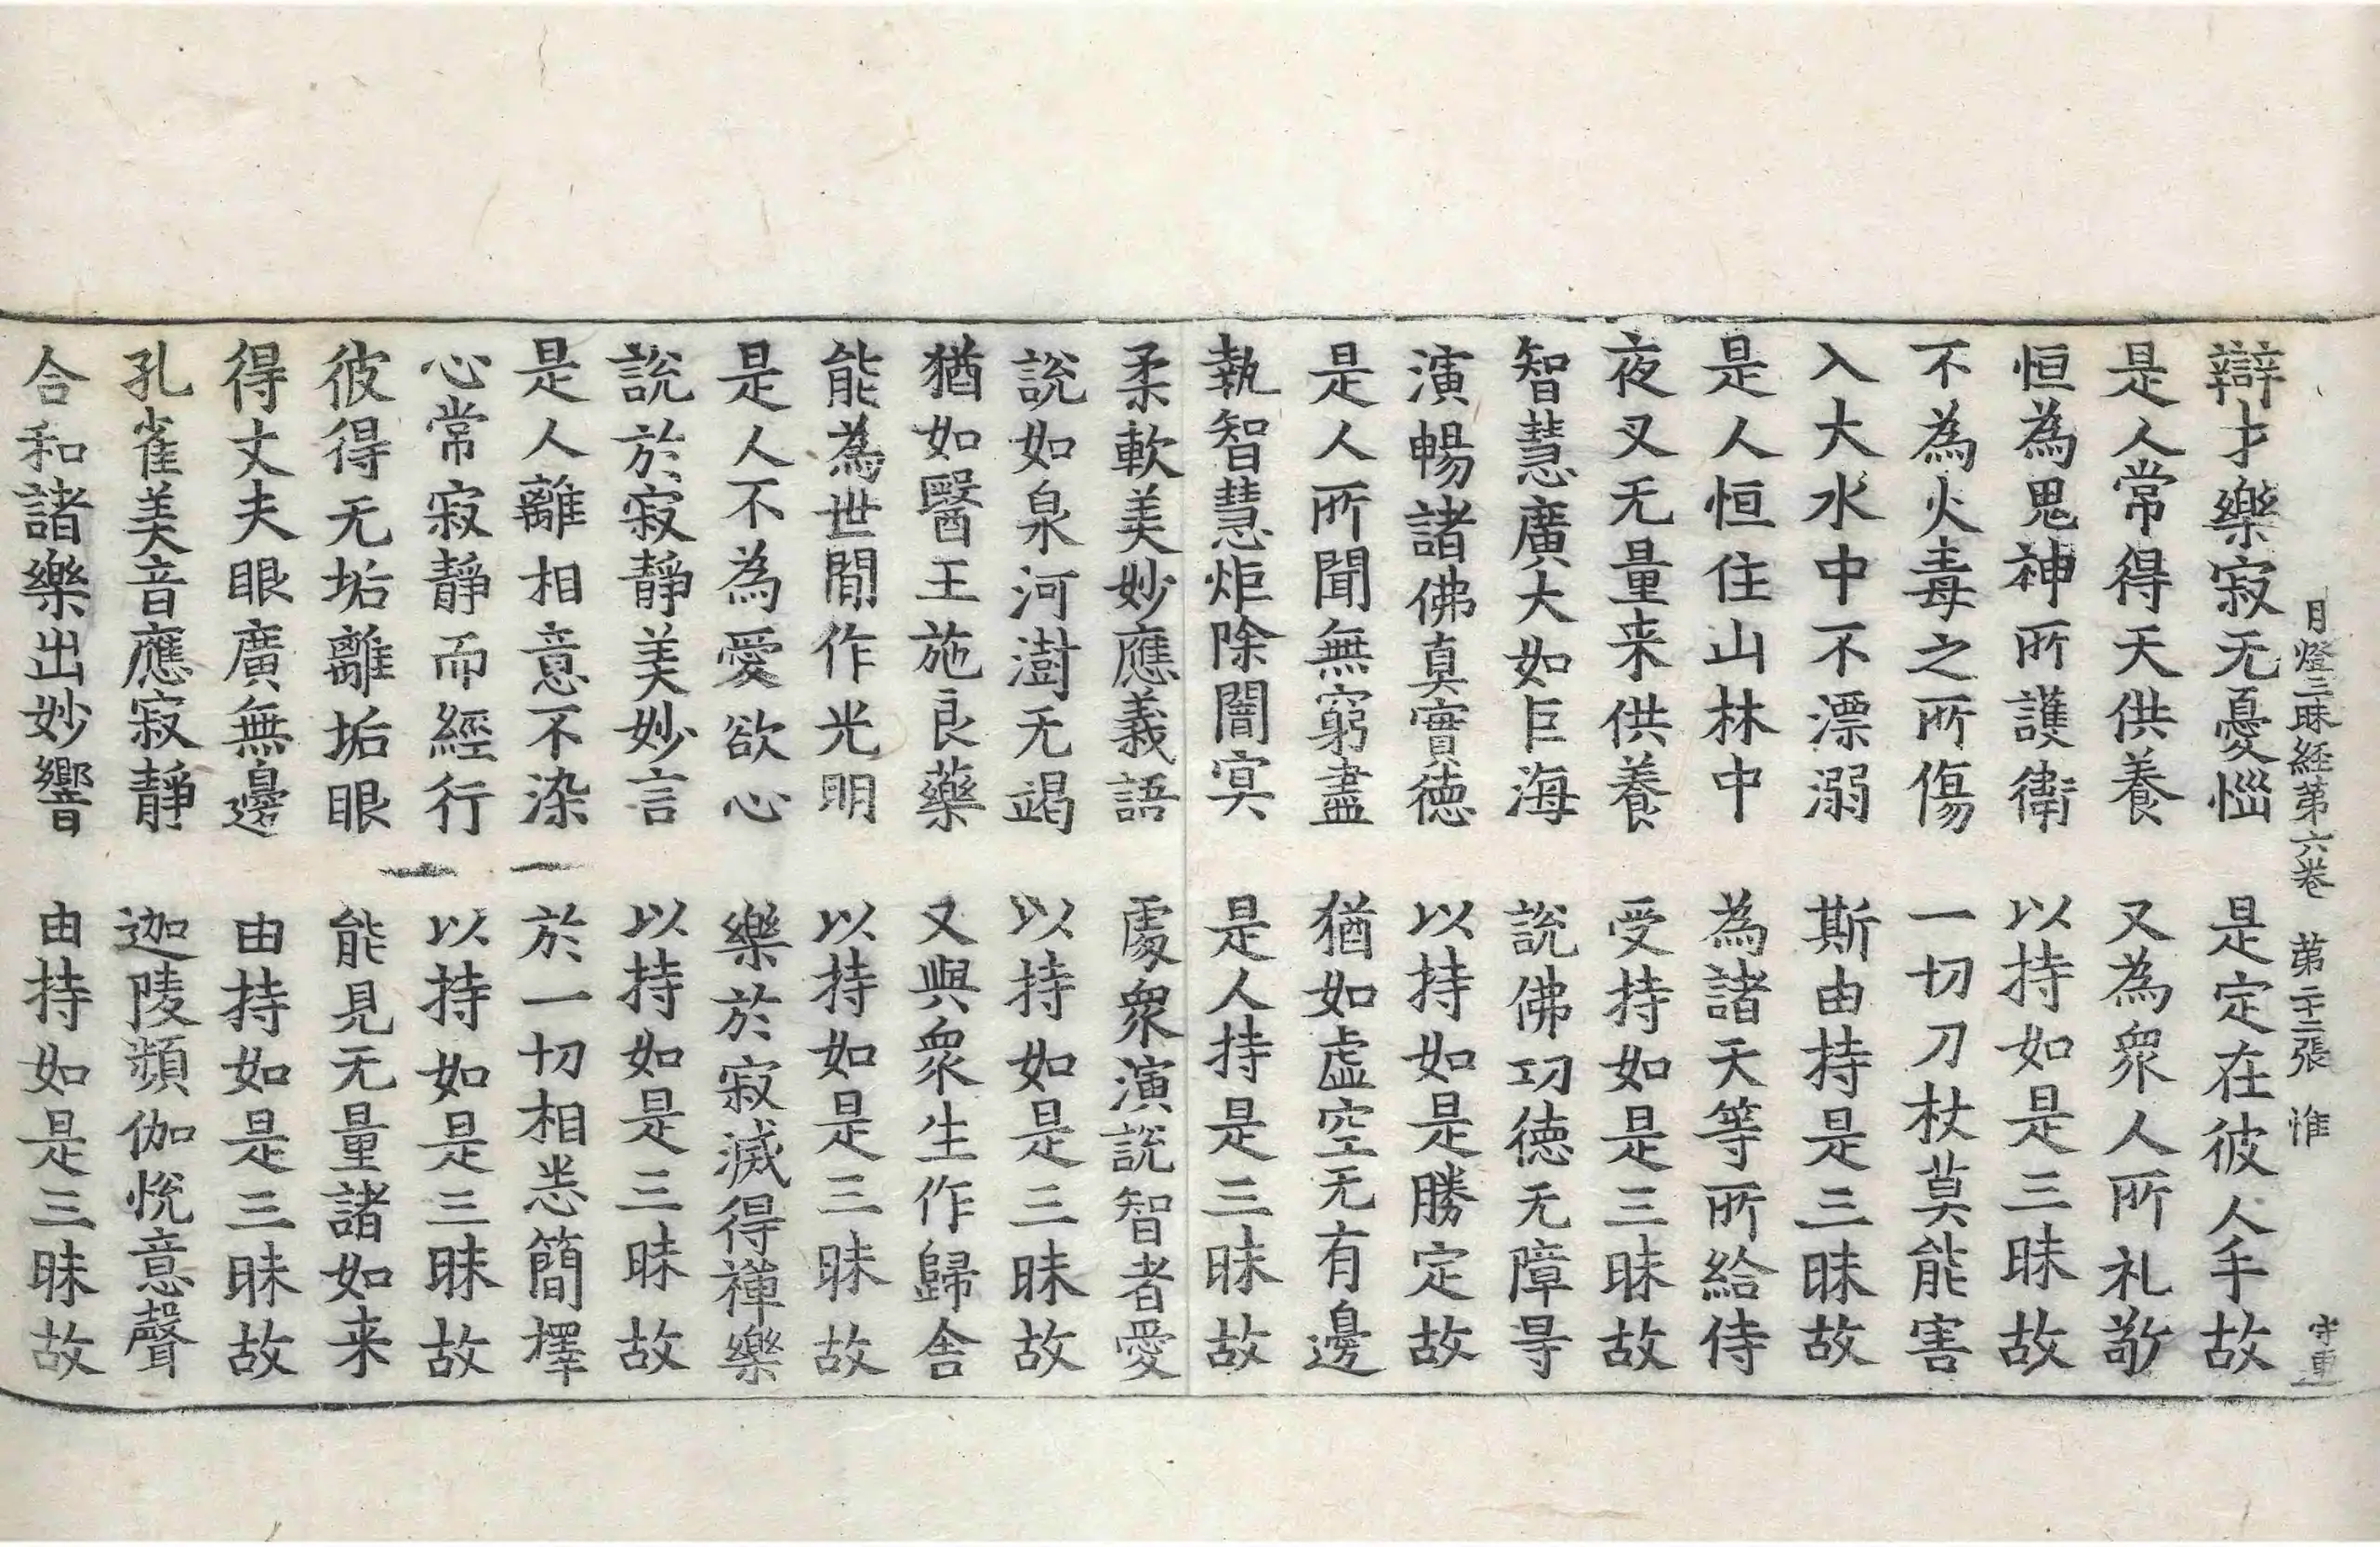 月燈三昧経第六卷 第二十二張 惟
辯才樂寂无憂惱 是定在彼人手故
是人常得天供養 又為衆人所礼敬
恒為鬼神所護衛 以持如是三昧故
不為火毒之所傷 一切刀杖莫能害
入大水中不漂溺 斯由持是三昧故
是人恒住山林中 為諸天等所給侍
夜叉无量来供養 受持如是三昧故
智慧廣大如巨海 說佛功德无障㝵
演暢諸佛真實德 以持如是勝定故
是人所聞無窮盡 猶如虛空无有邊
執智慧炬除闇㝠 是人持是三昧故
柔軟美妙應義語 處衆演說智者愛
說如泉河澍无竭 以持如是三昧故
猶如醫王施良藥 又與衆生作歸舍
能為世間作光明 以持如是三昧故
是人不為愛欲心 樂於寂滅得禪樂
說於寂靜美妙言 以持如是三昧故
是人離相意不染 於一切相悉簡擇
心常寂靜而經行 以持如是三昧故
彼得无垢離垢眼 能見无量諸如来
得丈夫眼廣無邊 由持如是三昧故
孔雀美音應寂靜 迦陵頻伽悅意聲
合和諸樂出妙響 由持如是三昧故